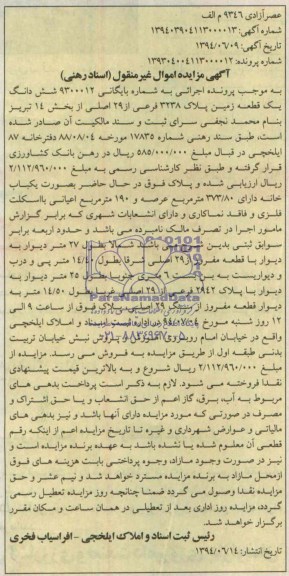 عصرآزادی ۹۳۴۶ م الف
شماره آگهی: ۱۳۹۴۰۳۹۰۴۱۱۳۰۰۰۰۱۳
تاریخ آگهی: ۱۳۹۴/۰۶/۰۹
شماره پرونده: ۱۳۹۳۰۴۰۰۴۱۱۳۰۰۰۰۱۲
آگهی مزایده اموال غیرمنقول (اسناد رهنی)
به موجب پرونده اجرائی به شماره بایگانی ۹۳۰۰۰۱۲ شش دانگ
یک قطعه زمین پلاک ۳۲۳۸ فرعی از ۲۹ اصلی از بخش ۱۴ تبریز
بنام محمد نجفی سرای ثبت و سند مالکیت آن صادر شده
است، طبق سند رهنی شماره ۱۷۸۳۵ مورخه ۸۸/۰۸/۰۴ دفترخانه ۸۷
ایلخچی در قبال مبلغ ۵۸۵/۰۰۰/۰۰۰ ریال در رهن بانک کشاورزی
قرار گرفته و طبق نظر کارشناسی رسمی به مبلغ ۲/۱۱۲/۹۶۰/۰۰۰
ریال ارزیابی شده و پلاک فوق در حال حاضر بصورت یکباب
خانه دارای ۳۷۳/۸۰ مترمربع عرصه و ۱۹۰ مترمربع اعیانی بااسکلت
فلزی و فاقد نماکاری و دارای انشعابات شهری که برابر گزارش
مامور اجرا در تصرف مالک نامبرده می باشد و حدود اربعه برابر
سوابق ثبتی بدین شمالا بطول ۲۷ متر دیوار به
دیوار با قطعه مفروز از ۲۹ اصلی شرقا بطول ۱۴/۵۰ متر پی و درب
و دیواریست به متری جنوبا بطول ۲۵ متر دیوار به
دیوار با پلاک ۲۹۴۲ فرعی از ۲۹ اصلی غربا بطول ۱۴/۵۰ متر به
دیوار قطعه مفروز از ۲۹ اصلی پلاک فوق از ساعت ۹ الی
۱۲ روز شنبه مورخ در اداره ثبت اسناد و املاک ایلخچی
واقع در خیابان امام روبروی نبش خیابان تربیت
بدنی طبقه اول از طریق مزایده به فروش می رسد. مزایده از
مبلغ ۲/۱۱۲/۹۶۰/۰۰۰ ریال شروع و به بالاترین قیمت پیشنهادی
نقدا فروخته می شود. لازم به ذکر است پرداخت بدهی های
مربوط به آب، برق، گاز اعم از حق انشعاب و یا حق اشتراک و
مصرف در صورتی که مورد مزایده دارای آنها باشد و نیز بدهی های
مالیاتی و عوارض شهرداری و غیره تا تاریخ مزایده اعم از اینکه رقم
قطعی آن معلوم شده یا نشده باشد به عهده برنده مزایده است و
نیز در صورت وجود مازاد، وجوه پرداختی بابت هزینه های فوق
ازمحل مازاد به برنده مزایده مسترد خواهد شد و نیم عشر و حق
مزایده نقدا وصول می گردد ضمنا چنانچه روز مزایده تعطیل رسمی
گردد، مزایده روز اداری بعد از تعطیلی در همان ساعت و مکان مقرر
برگزار خواهد شد.
رئیس ثبت اسناد و املاک ایلخچی - افراسیاب فخری
تاریخ انتشار: ۱۳۹۴/۰۶/۱۴
ParsNamadData
۰۲۱-۸۸۳۴۹۶۷۰